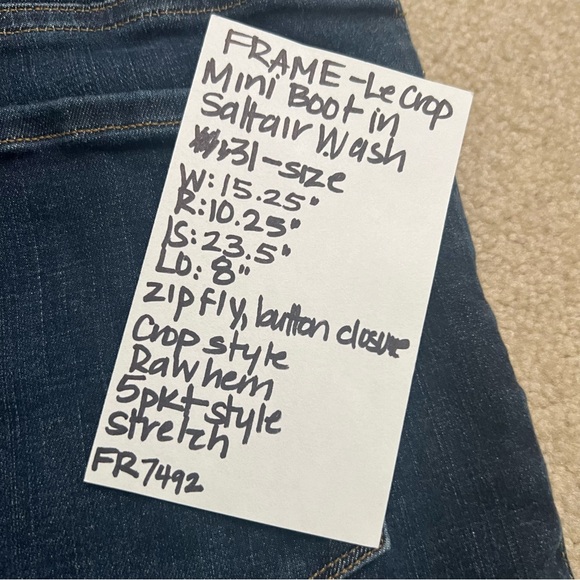 FRAME - Le Crop
Mini Boot in
Saltair Wash
31 - size
W: 15.25"
R: 10.25"
IS: 23.5"
LO: 8"
zip fly, button closure
Crop style
Raw hem
5pkt style
stretch
FR7492